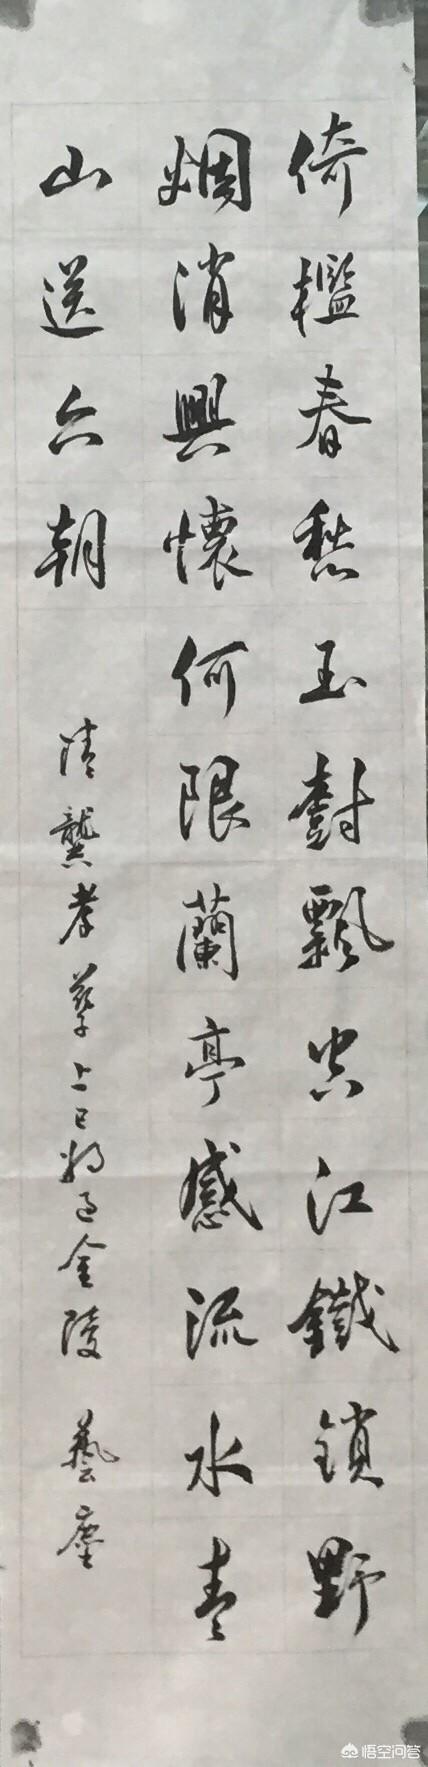 倚檻春愁玉樹飄空江鐵鎖野
烟消興懷何限蘭亭感流水青
山送六朝
清龔孝孳上巳將過金陵 藝塵
悟空问答